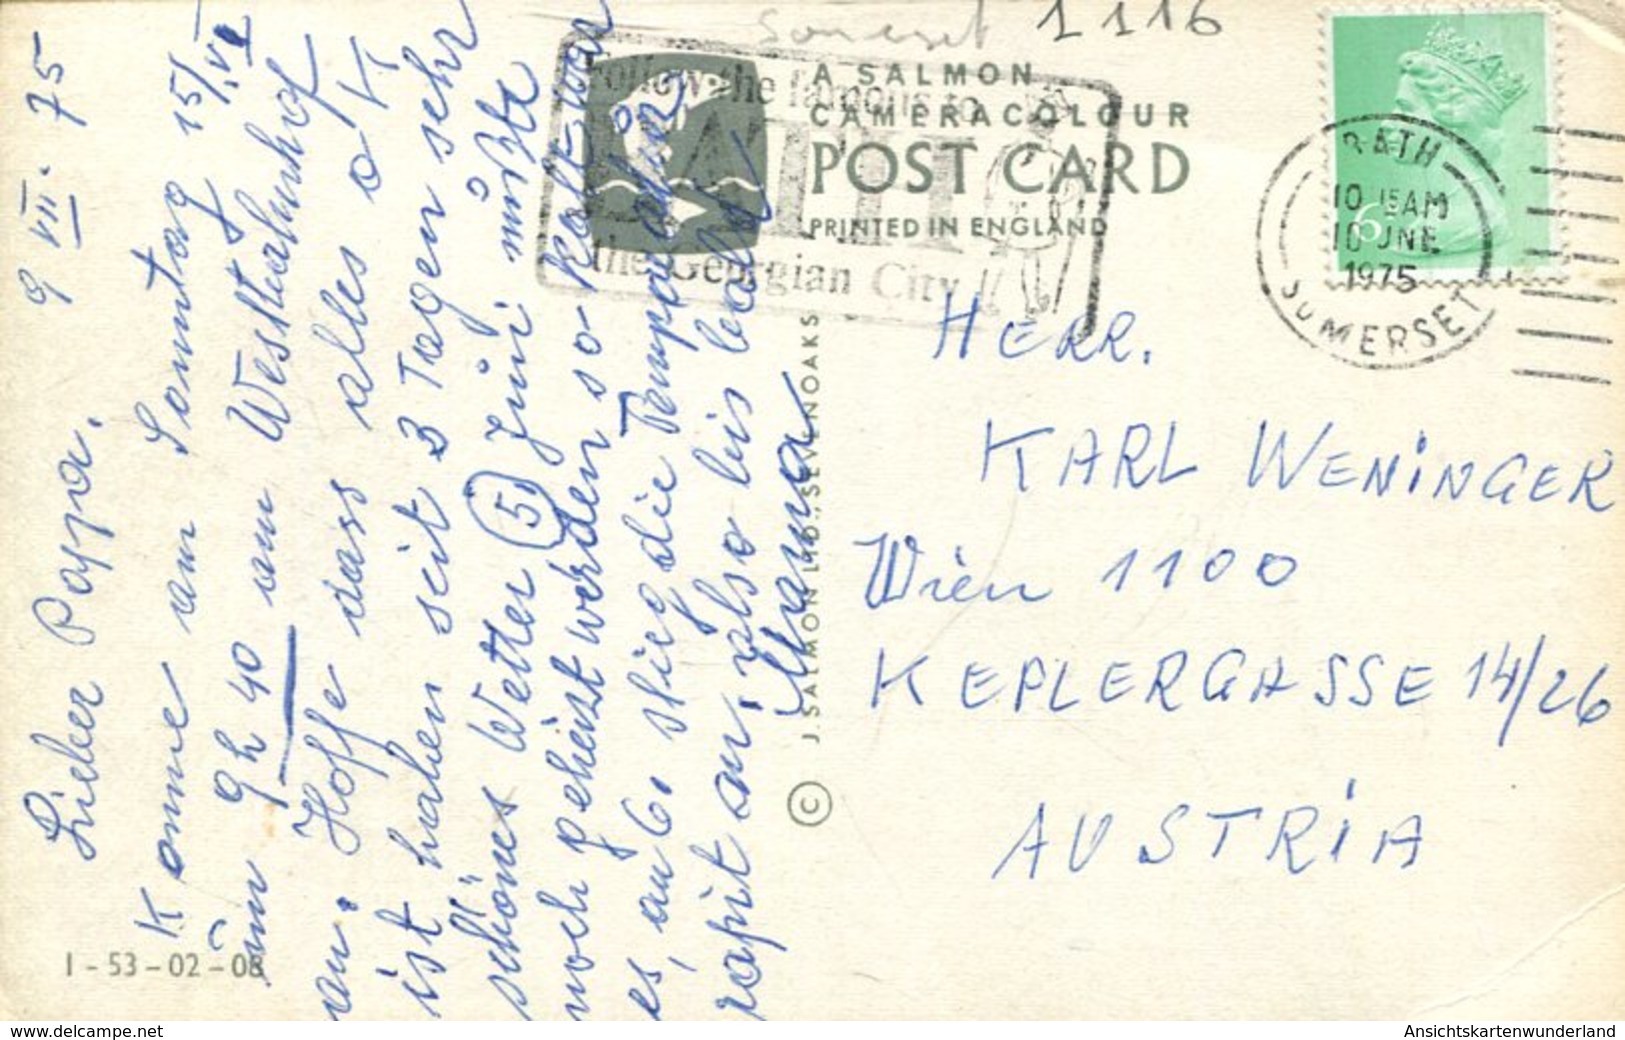 9 VII. 75
Lieber Pappa.
Komme am Sonntag 15/VI
um 9h 40 am Westbahnhof
an. Hoffe dass alles o K
ist haben seit 3 Tagen sehr
schönes Wetter 5 Juni mußte
noch geheizt werden so kalt war
es, am 6. stieg die Temperatur
rapit an, also bis bald
Mama
Somerset 1116
Follow the famous to
the Georgian City
A SALMON
CAMERACOLOUR
POST CARD
PRINTED IN ENGLAND
BATH
10 15AM
10 JNE
1975
SOMERSET
6½
HERR.
KARL WENINGER
Wien 1100
KEPLERGASSE 14/26
AUSTRIA
© J. SALMON LTD., SEVENOAKS
1-53-02-08
www.delcampe.net
Ansichtskartenwunderland